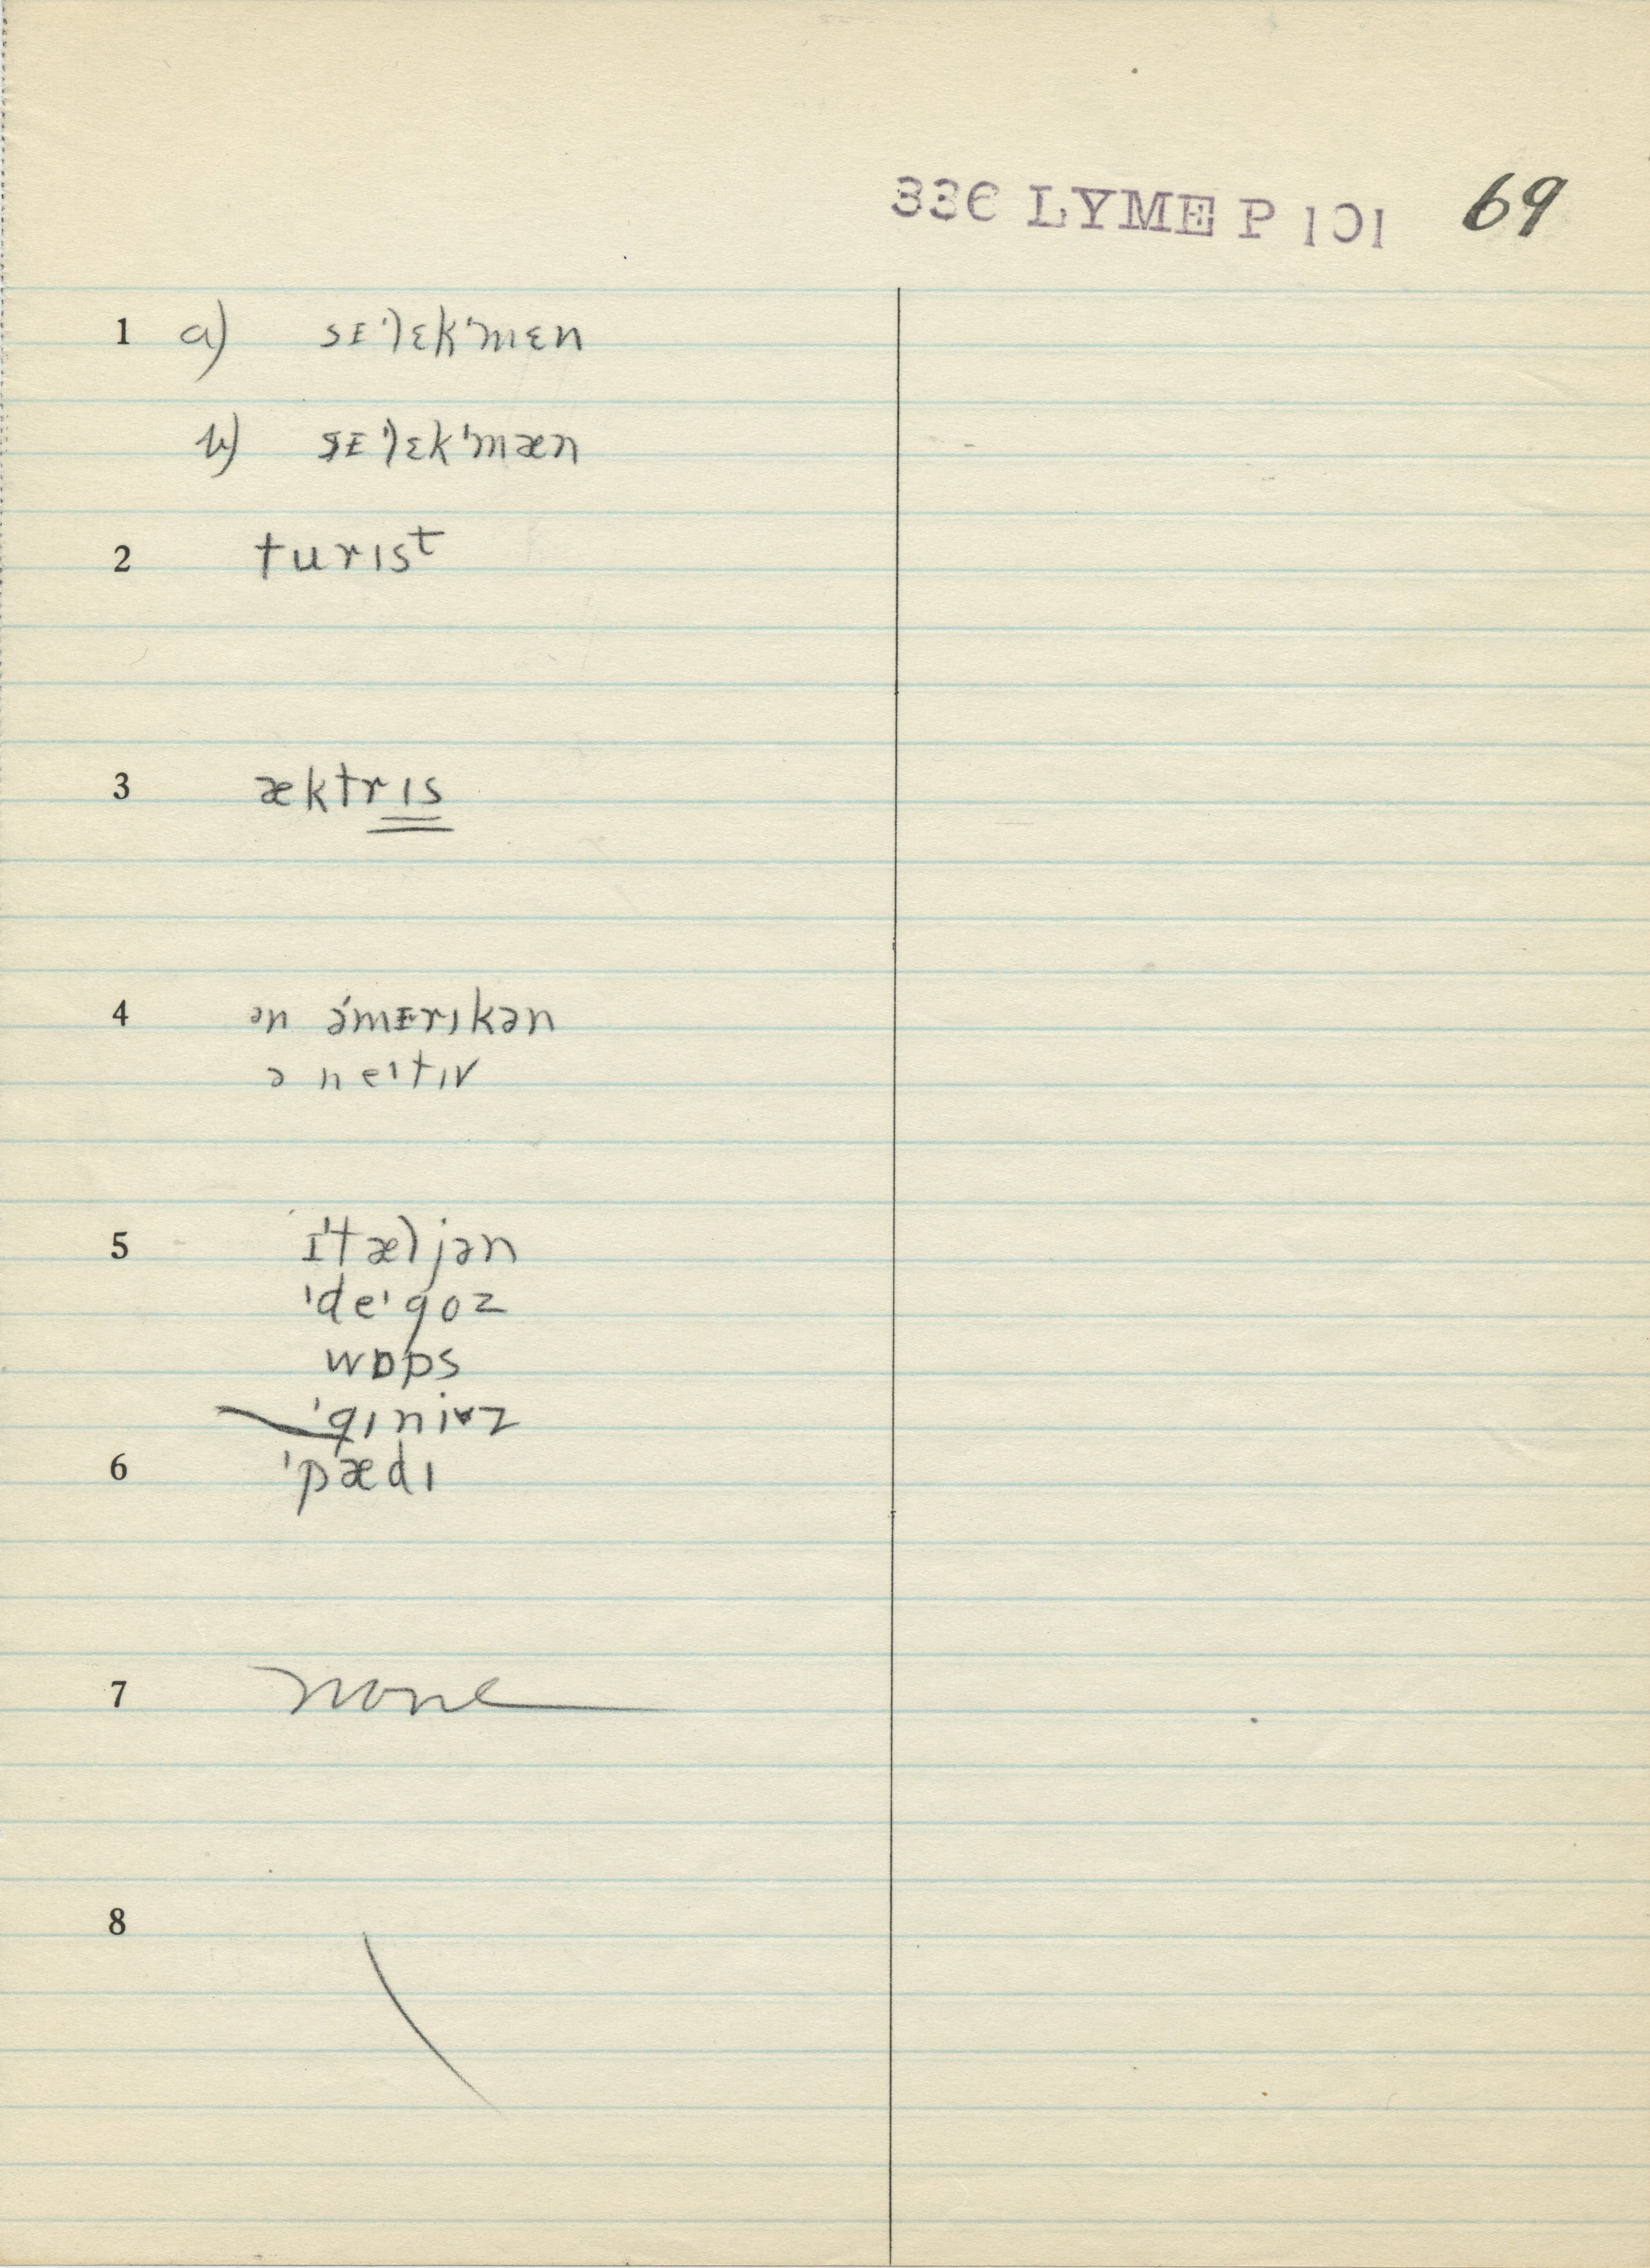 336 LYME P 101 69
1 a) sᴇ'lɛk'mɛn
b) sᴇ'lɛk'mæn
2 turɪst
3 æktrɪs
4 ən əˈmᴇrɪkən
ə neɪtɪv
5 ɪ'tæljən
'deɪgoz
wɒps
'gɪniɐz
6 'pædɪ
7 none
8